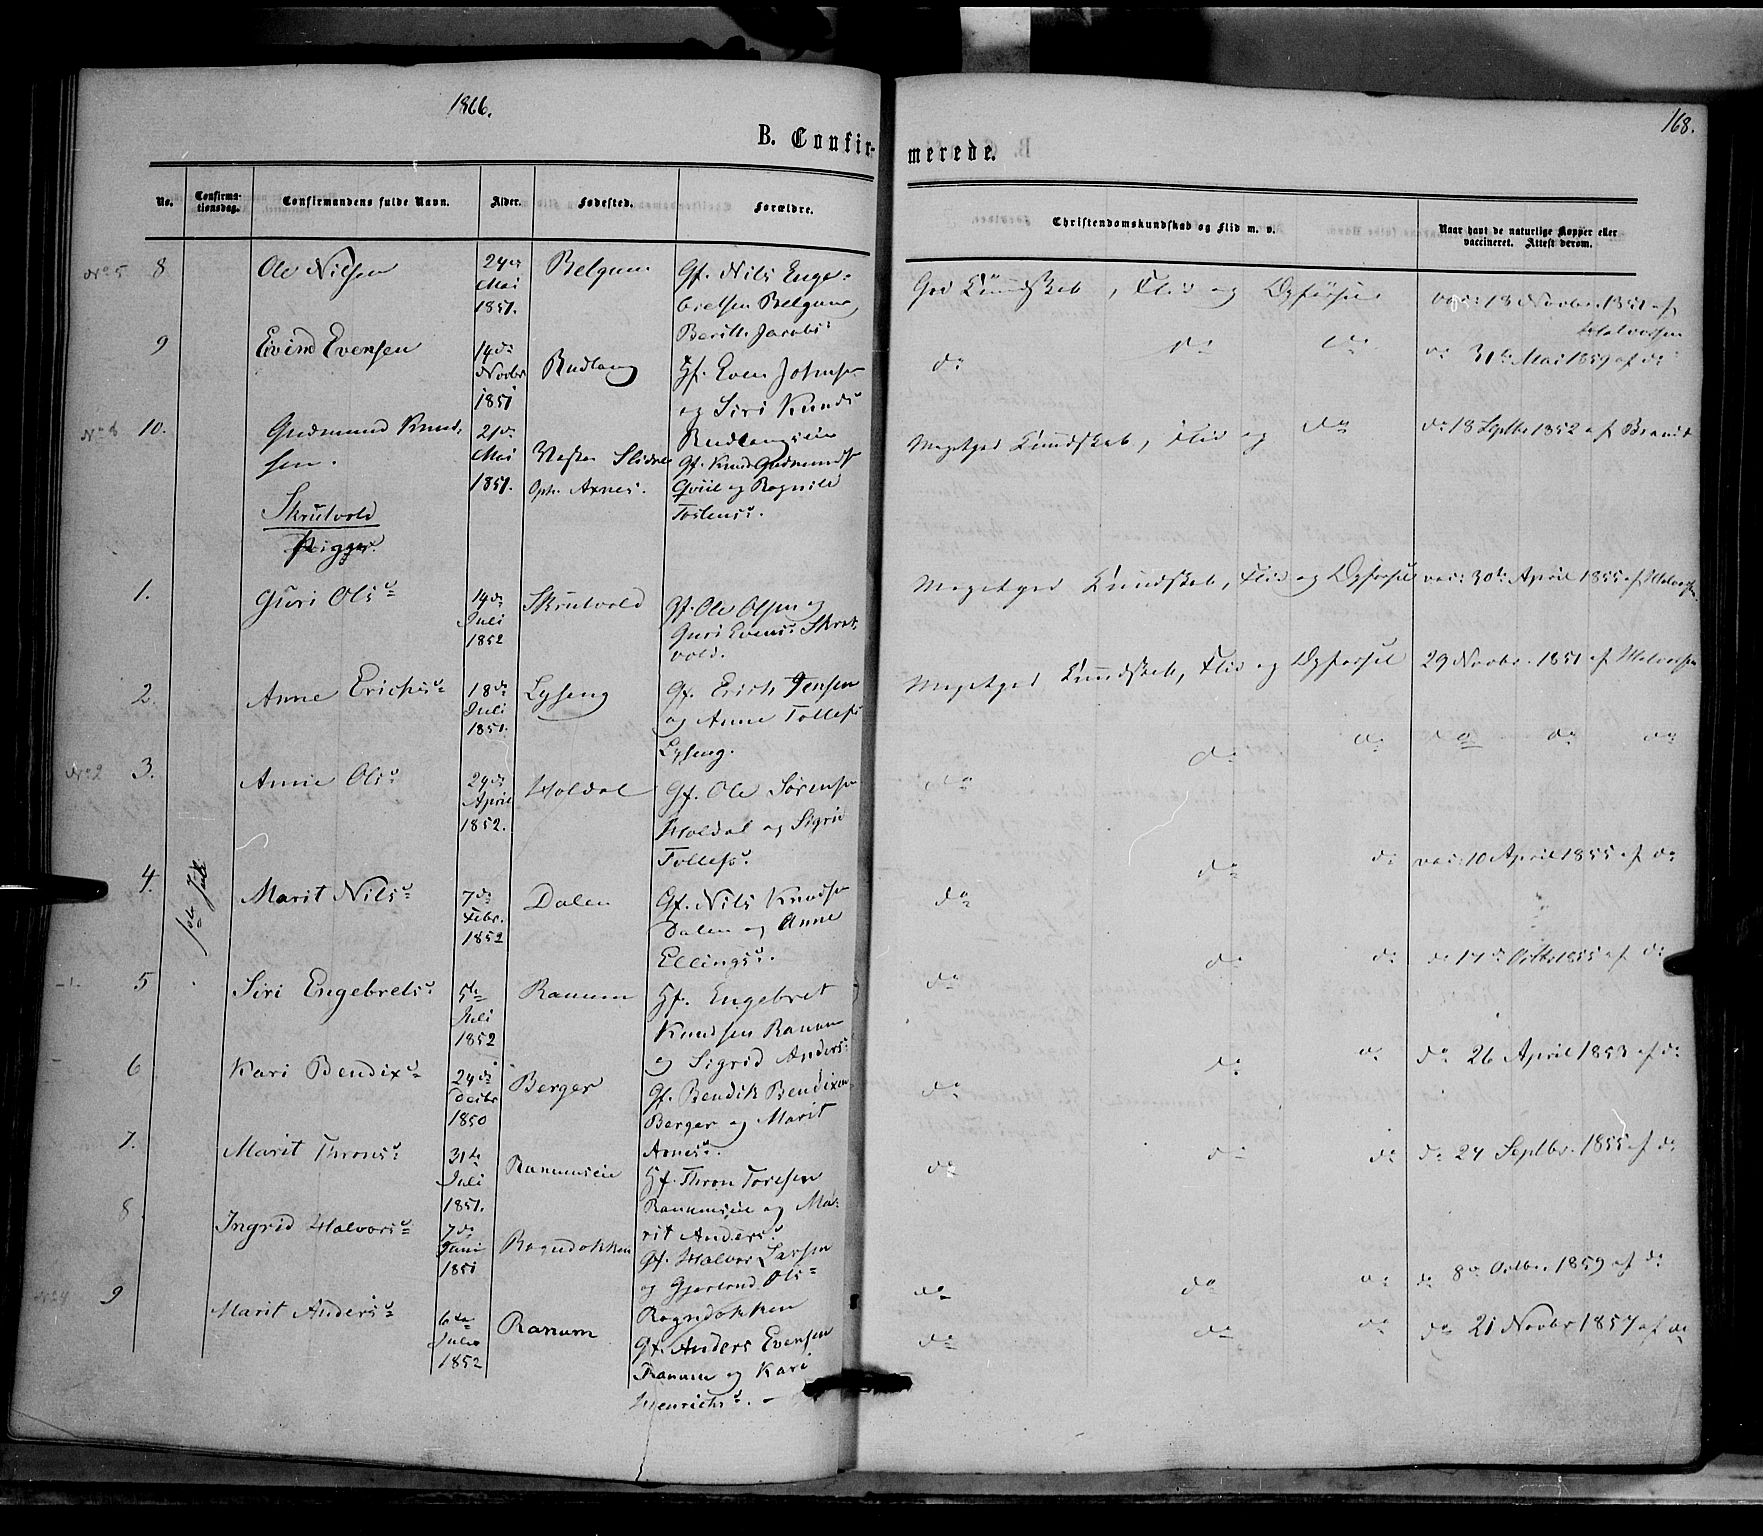 1866.
168.
B. Confirmerede.
No.
Confirmationsdag.
Confirmandens fulde Navn.
Alder.
Fødested.
Forældre.
Christendomskundskab og Flid m. v.
Naar havt de naturlige Kopper eller vaccineret. Attest derom.
No 5 8 Ole Nilsen 24de Mai 1851. Belgum Gf. Nils Engebretsen Belgum, Berith Jacobs: God Kundskab, Flid og Opførsel vac: 18 Novbr. 1851 af Halvorsen
9 Eivind Evensen 14de Novbr 1851 Rudlang Hf. Even Johnsen og Siri Knuds Rudlangseie do do do do 31te Mai 1859 af do
10. Gudmund Knudsen. 21de Mai 1851. Vestre Slidre Oph. Axnes. Gf. Knud Gudmunds Qviil og Ragnild Tostens. Megetgod Kundskab, Flid og do do 18 Septbr 1852 af Brandt
Skrutvold
Piger.
1. Guri Ols 14de Juli 1852 Skrutvold Gf. Ole Olsen og Guri Evens. Skrutvold. Megetgod Kundskab, Flid og Opførsel vac: 30te April 1855 af Halvorsen
2. Anne Erichs 18de Juli 1851. Lyseng Gf. Erich Jensen og Anne Tollefs Lyseng. Megetgod Kundskab, Flid og Opførsel 29 Novbr. 1851 af Halvorsen
No 2 3. Anne Ols 29de April 1852. Holdal Gf. Ole Sørensen Holdal og Sigrid Tollefs. do do do do do do
4. 1ste Juli Marit Nils 7de Febr. 1852 Dalen Gf. Nils Knudsen Dalen og Anne Ellings. do do do vac: 10 April 1855 af do
5 Siri Engebrets 5te Juli 1852 Ranum Hf. Engebret Knudsen Ranum og Sigrid Anders: do do do do 17de Octbr 1855 af do
6 Kari Bendix 24de Decbr 1850 Berger Gf. Bendik Bendixen Berger og Marit Arnes. do do do do 26 April 1853 af do
7. Marit Throns 31te Juli 1851. Ranumseie Hf. Thron Toresen Ranumseie og Marit Anders. do do do do 24 Septbr. 1855 af do
8. Ingrid Halvors 7de Juni 1851 Rogndokken Gf. Halvor Larsen og Gjertrud Ols Rogndokken do do do do 8de Octbr. 1859 af do
No 4 9 Marit Anders 6te Juli 1852 Ranum Gf. Anders Evensen Ranum og Kari Henrichs. do do do do 21 Novbr 1857 af do